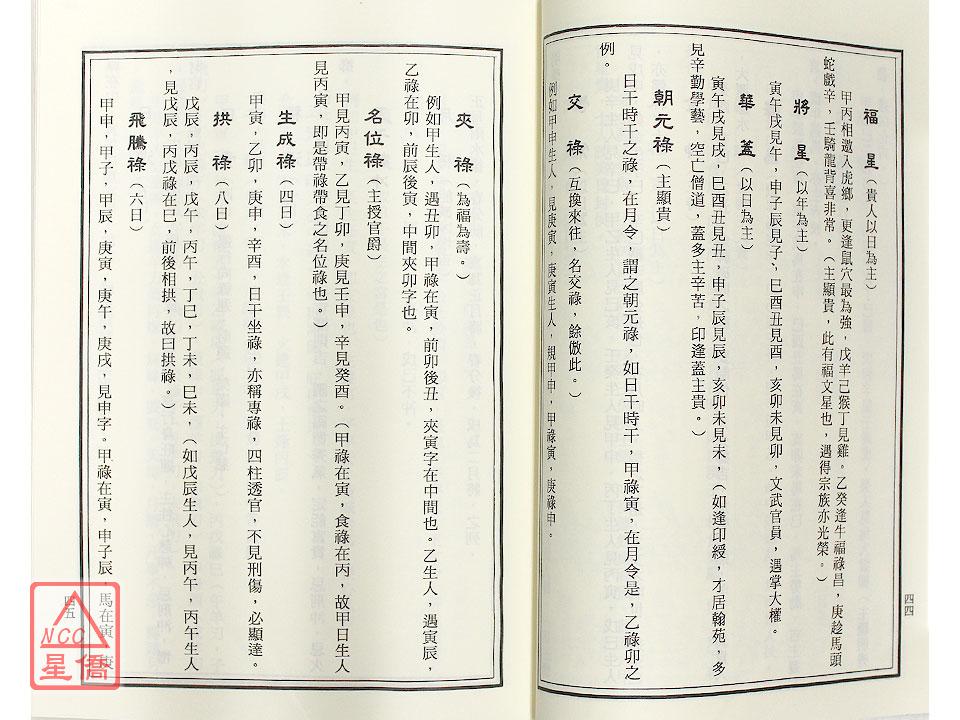 福　星（貴人以日為主）
甲丙相邀入虎鄉，更逢鼠穴最為強，戊羊己猴丁見雞。乙癸逢牛福祿昌，庚趁馬頭
蛇戲辛，壬騎龍背喜非常。（主顯貴，此有福文星也，遇得宗族亦光榮。）
將　星（以年為主）
寅午戌見午，申子辰見子、巳酉丑見酉，亥卯未見卯，文武官員，遇掌大權。
華　蓋（以日為主）
寅午戌見戌，巳酉丑見丑，申子辰見辰，亥卯未見未，（如逢印綬，才居翰苑，多
見辛勤學藝，空亡僧道，蓋多主辛苦，印逢蓋主貴。）
朝元祿（主顯貴）
日干時干之祿，在月令，謂之朝元祿，如日干時干，甲祿寅，在月令是，乙祿卯之
例。
交　祿（互換來往，名交祿，餘倣此。）
例如甲申生人，見庚寅，庚寅生人，親甲申，甲祿寅，庚祿申。
四四
夾　祿（為福為壽。）
例如甲生人，遇丑卯，甲祿在寅，前卯後丑，夾寅字在中間也。乙生人，遇寅辰，
乙祿在卯，前辰後寅，中間夾卯字也。
名位祿（主授官爵）
甲見丙寅，乙見丁卯，庚見壬申，辛見癸酉。（甲祿在寅，食祿在丙，故甲日生人
見丙寅，即是帶祿帶食之名位祿也。）
生成祿（四日）
甲寅，乙卯，庚申，辛酉，日干坐祿，亦稱專祿，四柱透官，不見刑傷，必顯達。
拱　祿（八日）
戊辰，丙辰，戊午，丙午，丁巳，丁未，巳未，（如戊辰生人，見丙午，丙午生人
，見戊辰，丙戊祿在巳，前後相拱，故曰拱祿。）
飛騰祿（六日）
甲申，甲子，甲辰，庚寅，庚午，庚戌，見申字。甲祿在寅，申子辰，馬在寅，庚
四五
NCC
星僑